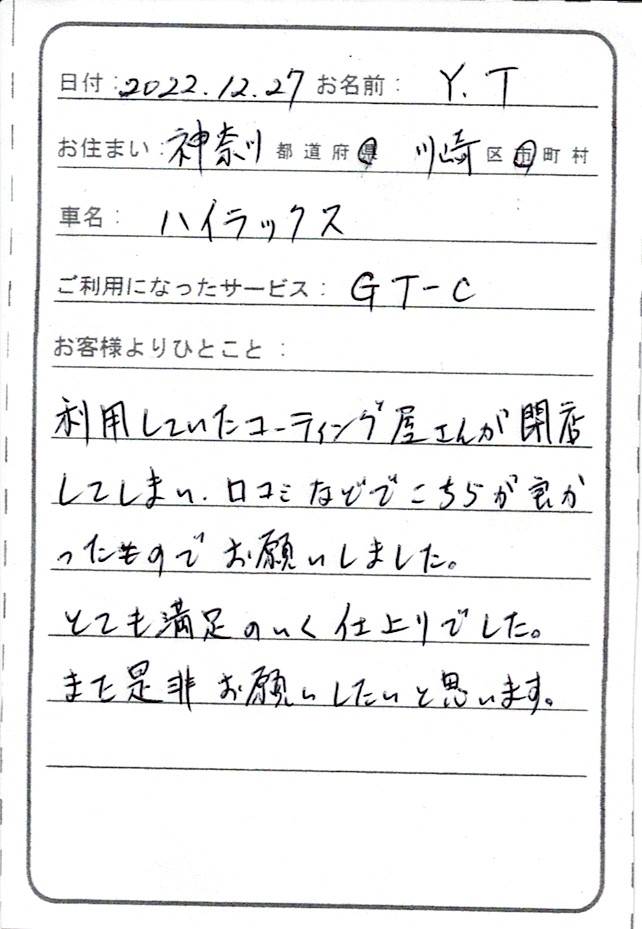 日付：2022.12.27 お名前： Y.T
お住まい：神奈川 都道府県 川崎 区市町村
車名： ハイラックス
ご利用になったサービス： GT-C
お客様よりひとこと：
利用していたコーティング屋さんが閉店
してしまい、口コミなどでこちらが良か
ったものでお願いしました。
とても満足のいく仕上りでした。
また是非お願いしたいと思います。